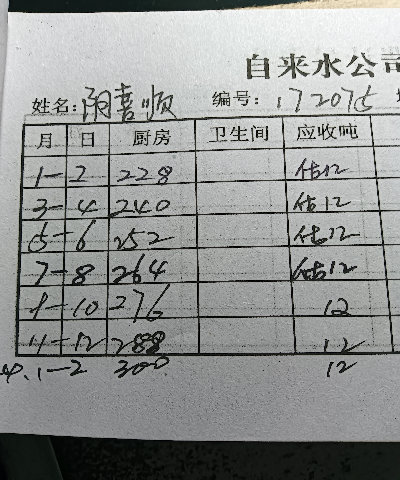 自来水公司
姓名: 闹喜顺 编号: 172075
月 日 厨房 卫生间 应收吨
1-2 228 估12
3-4 240 估12
5-6 252 估12
7-8 264 估12
9-10 276 12
11-12 288 12
1-2 300 12